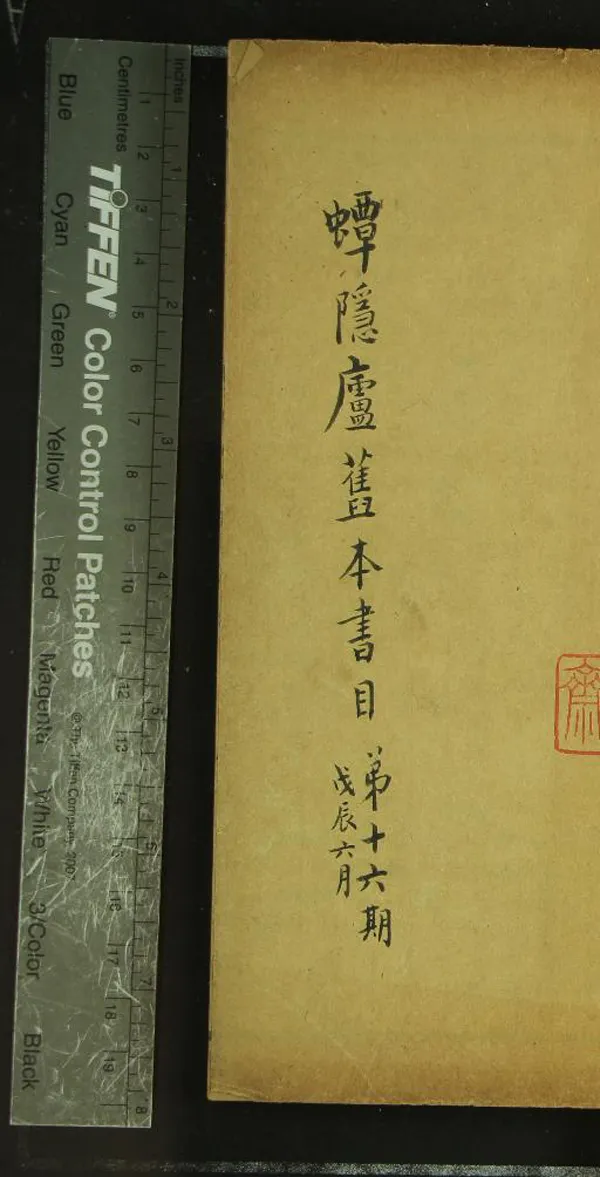 蟫隱廬舊本書目
第十六期
戊辰六月
齋
Inches
Centimetres
1 2 3 4 5 6 7 8
1 2 3 4 5 6 7 8 9 10 11 12 13 14 15 16 17 18 19
TIFFEN® Color Control Patches
© The Tiffen Company, 2007
Blue Cyan Green Yellow Red Magenta White 3/Color Black